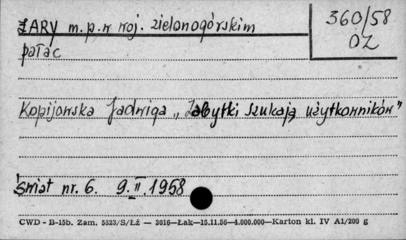 ŻARY m.p.w woj. zielonogórskim
360/58
OZ
pałac
Kopijowska Jadwiga „Zabytki szukają użytkowników"
Świat nr. 6. 9.II.1958
CWD - B-15b. Zam. 5523/S/Łź — 2016—Łak—15.11.56—4.000.000—Karton kl. IV A1/200 g